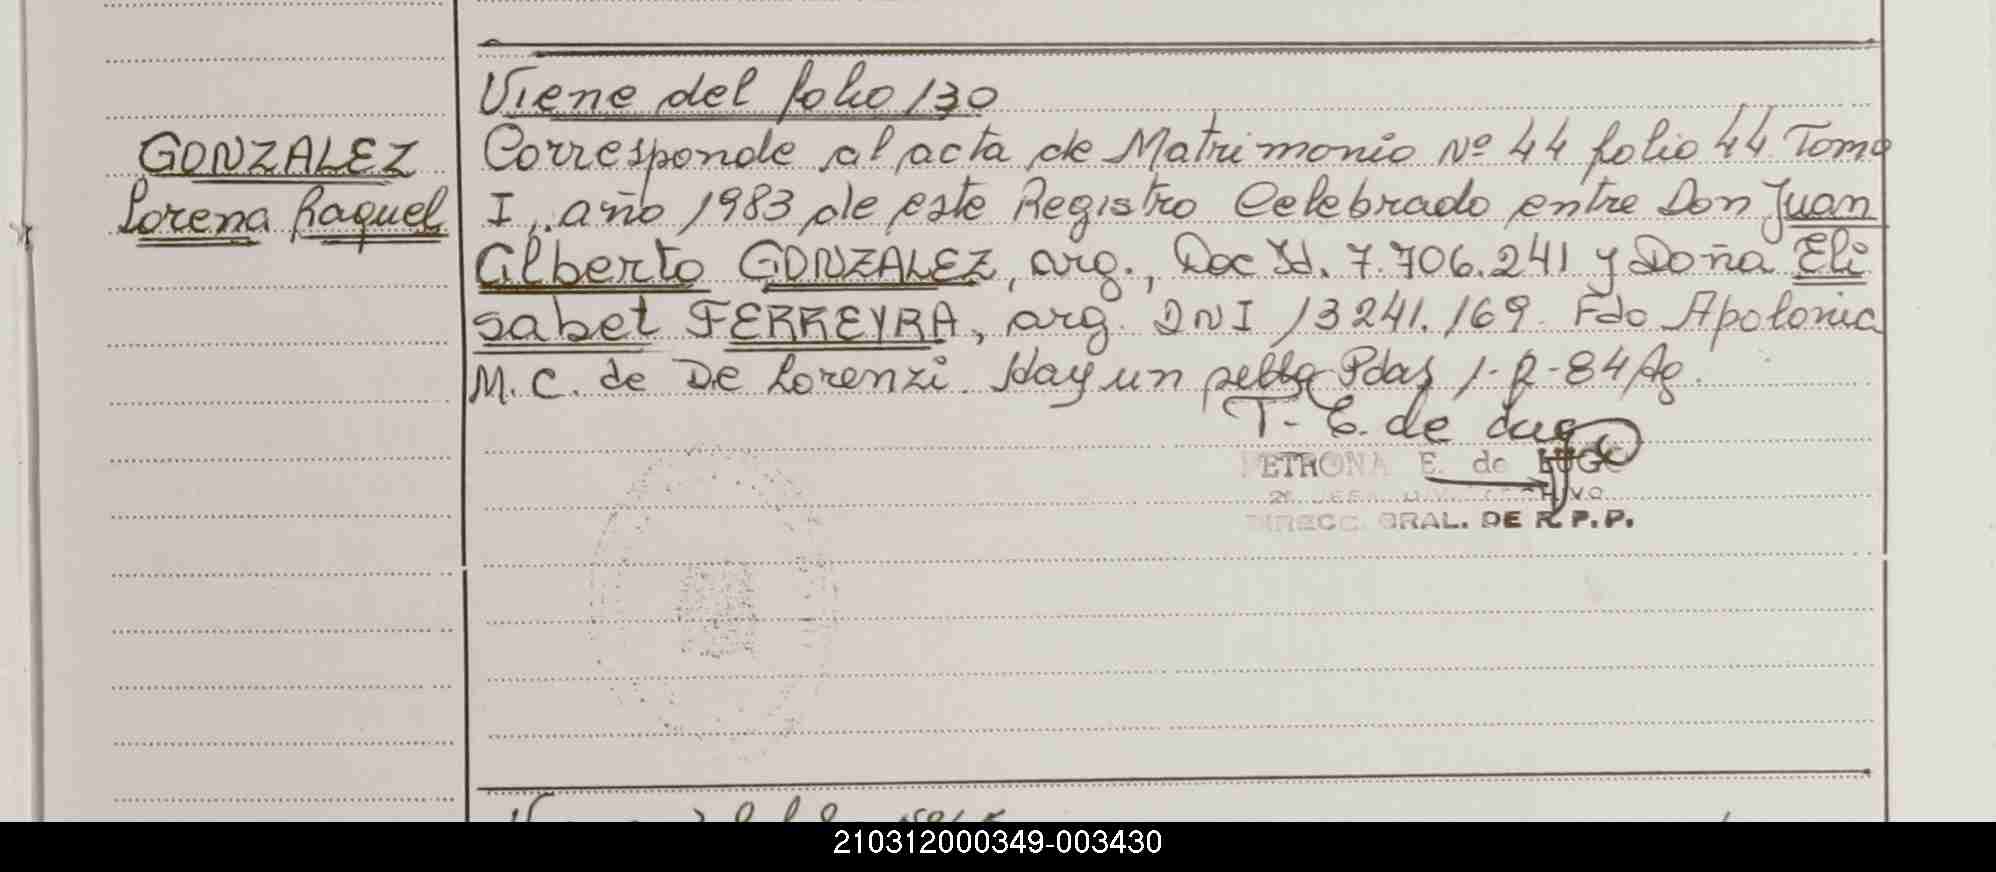 Viene del folio 130
GONZALEZ
Lorena Raquel
Corresponde al acta de Matrimonio Nº 44 folio 44 Tomo
I, año 1983 de este Registro Celebrado entre Don Juan
Alberto GONZALEZ, arg., Doc Id. 7.706.241 y Doña Eli
sabet FERREYRA, arg. DNI 13241.169. Fdo Apolonia
M. C. de De Lorenzi. Hay un sello Pdas 1-2-84 Ag.
T- E. de Lugo
PETRONA E. de LUGO
DIRECC. GRAL. DE R.P.P.
210312000349-003430